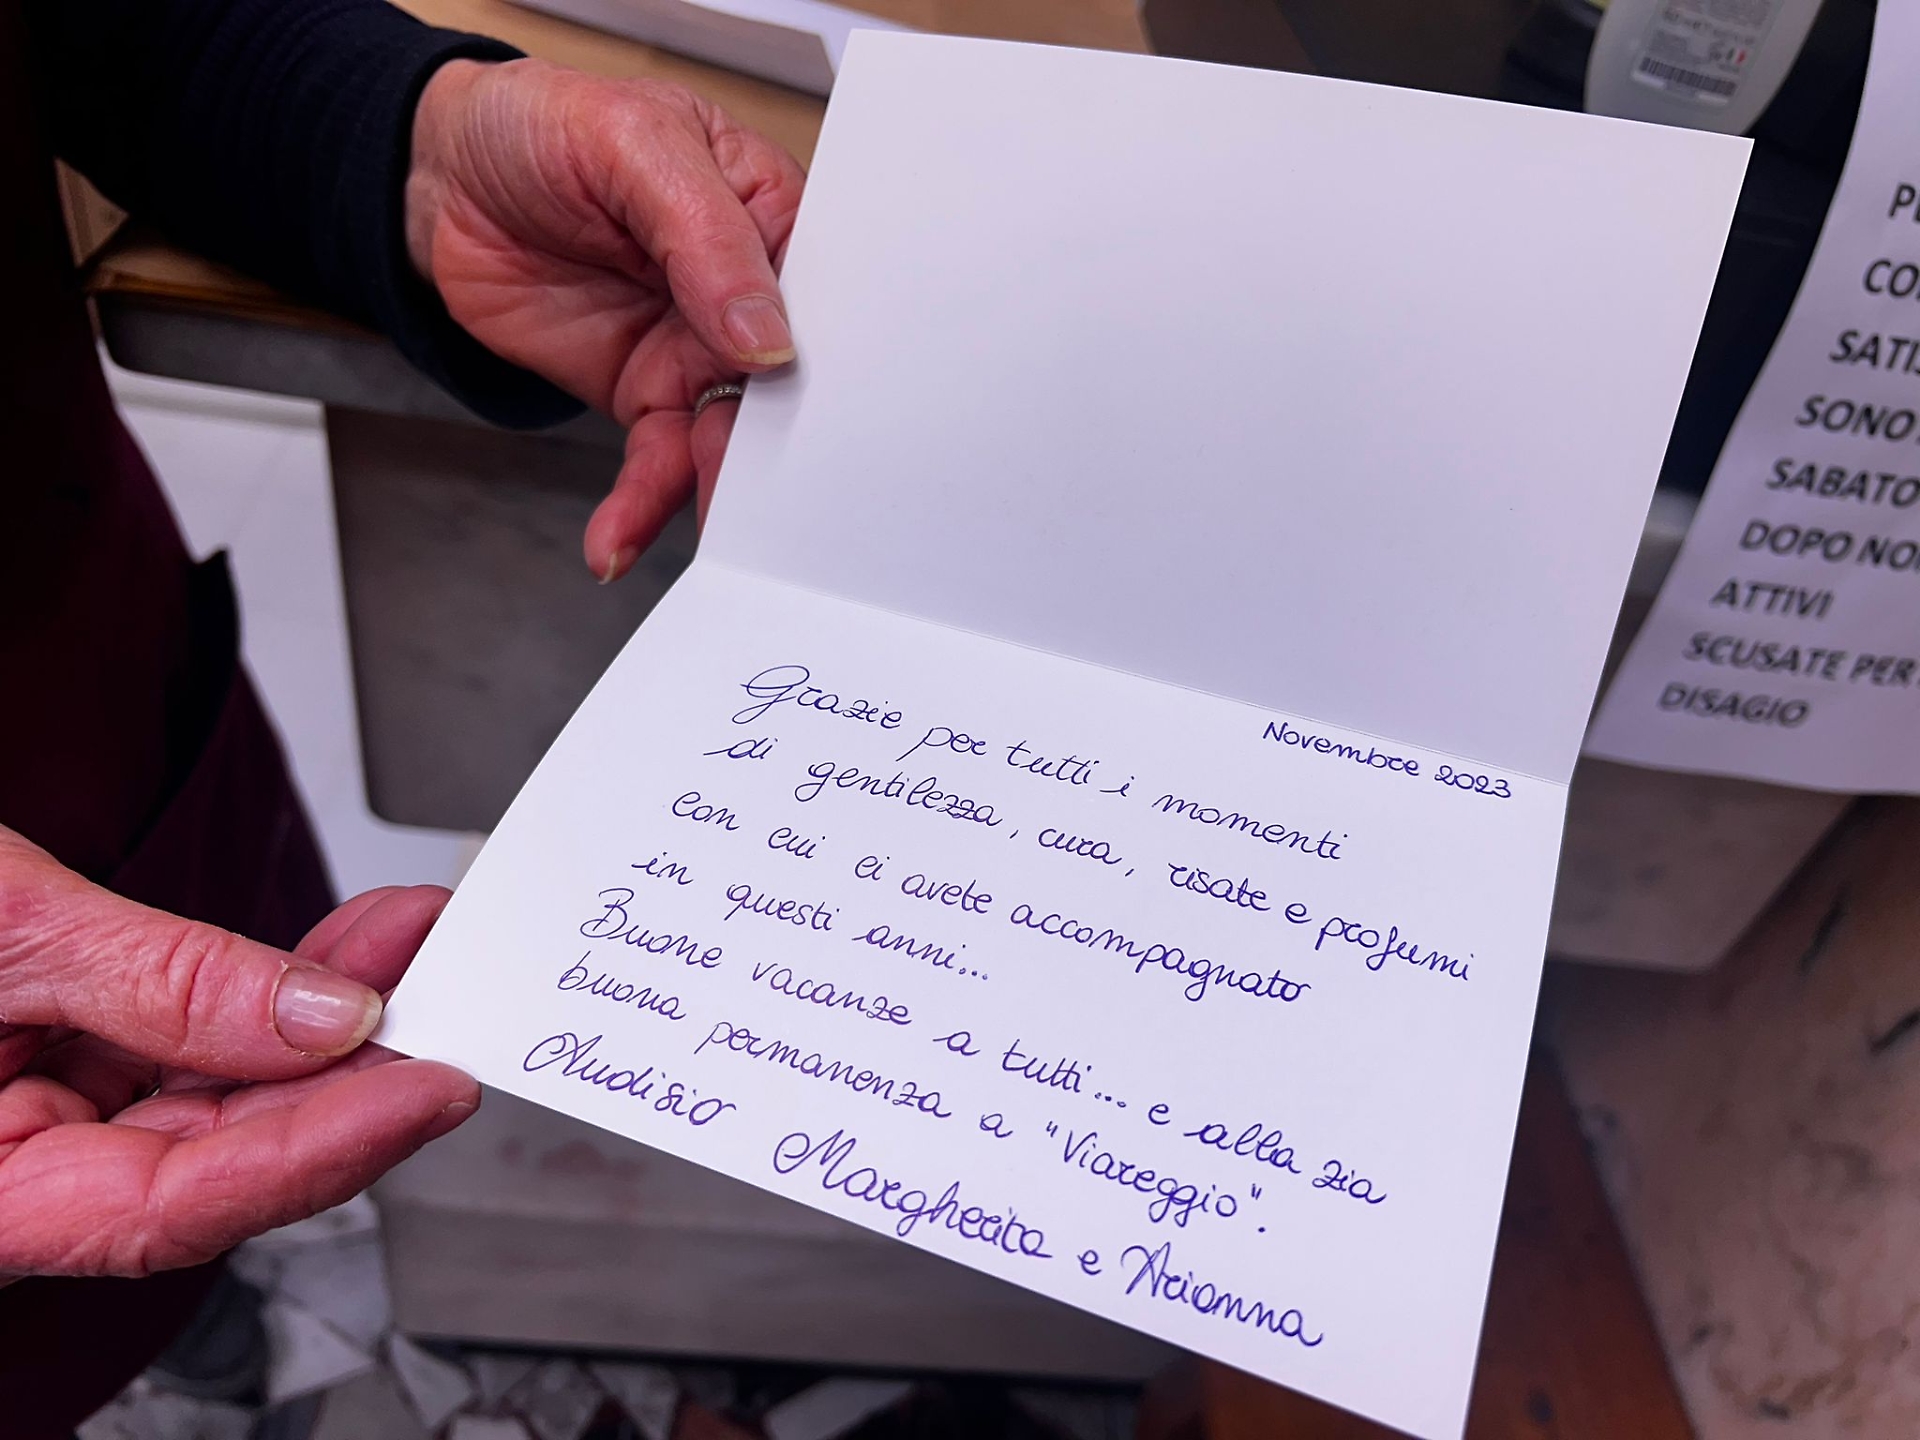 Novembre 2023
Grazie per tutti i momenti
di gentilezza, cura, risate e profumi
con cui ci avete accompagnato
in questi anni...
Buone vacanze a tutti... e alla zia
buona permanenza a "Viareggio".
Audisio Margherita e Arianna
SABATO
DOPO
ATTIVI
SCUSATE PER
DISAGIO